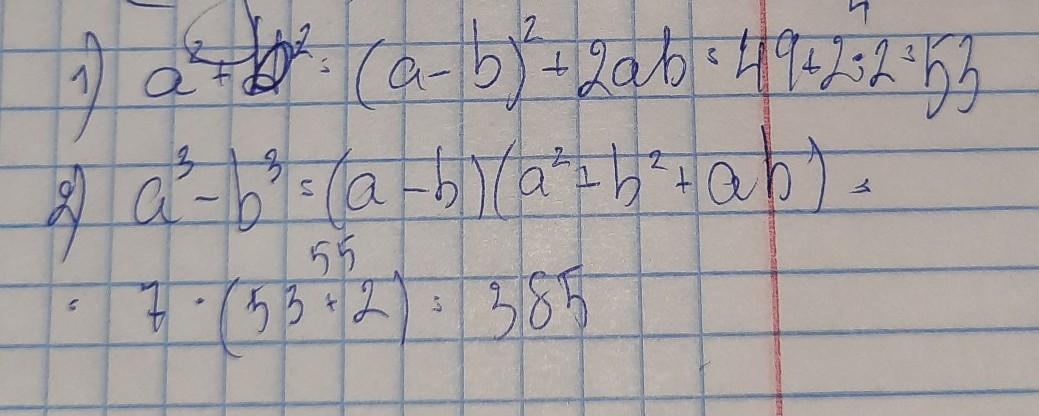 4
1) a² + b² = (a - b)² + 2ab = 49 + 2·2 = 53
2) a³ - b³ = (a - b)(a² + b² + ab) =
55
= 7 · (53 + 2) = 385